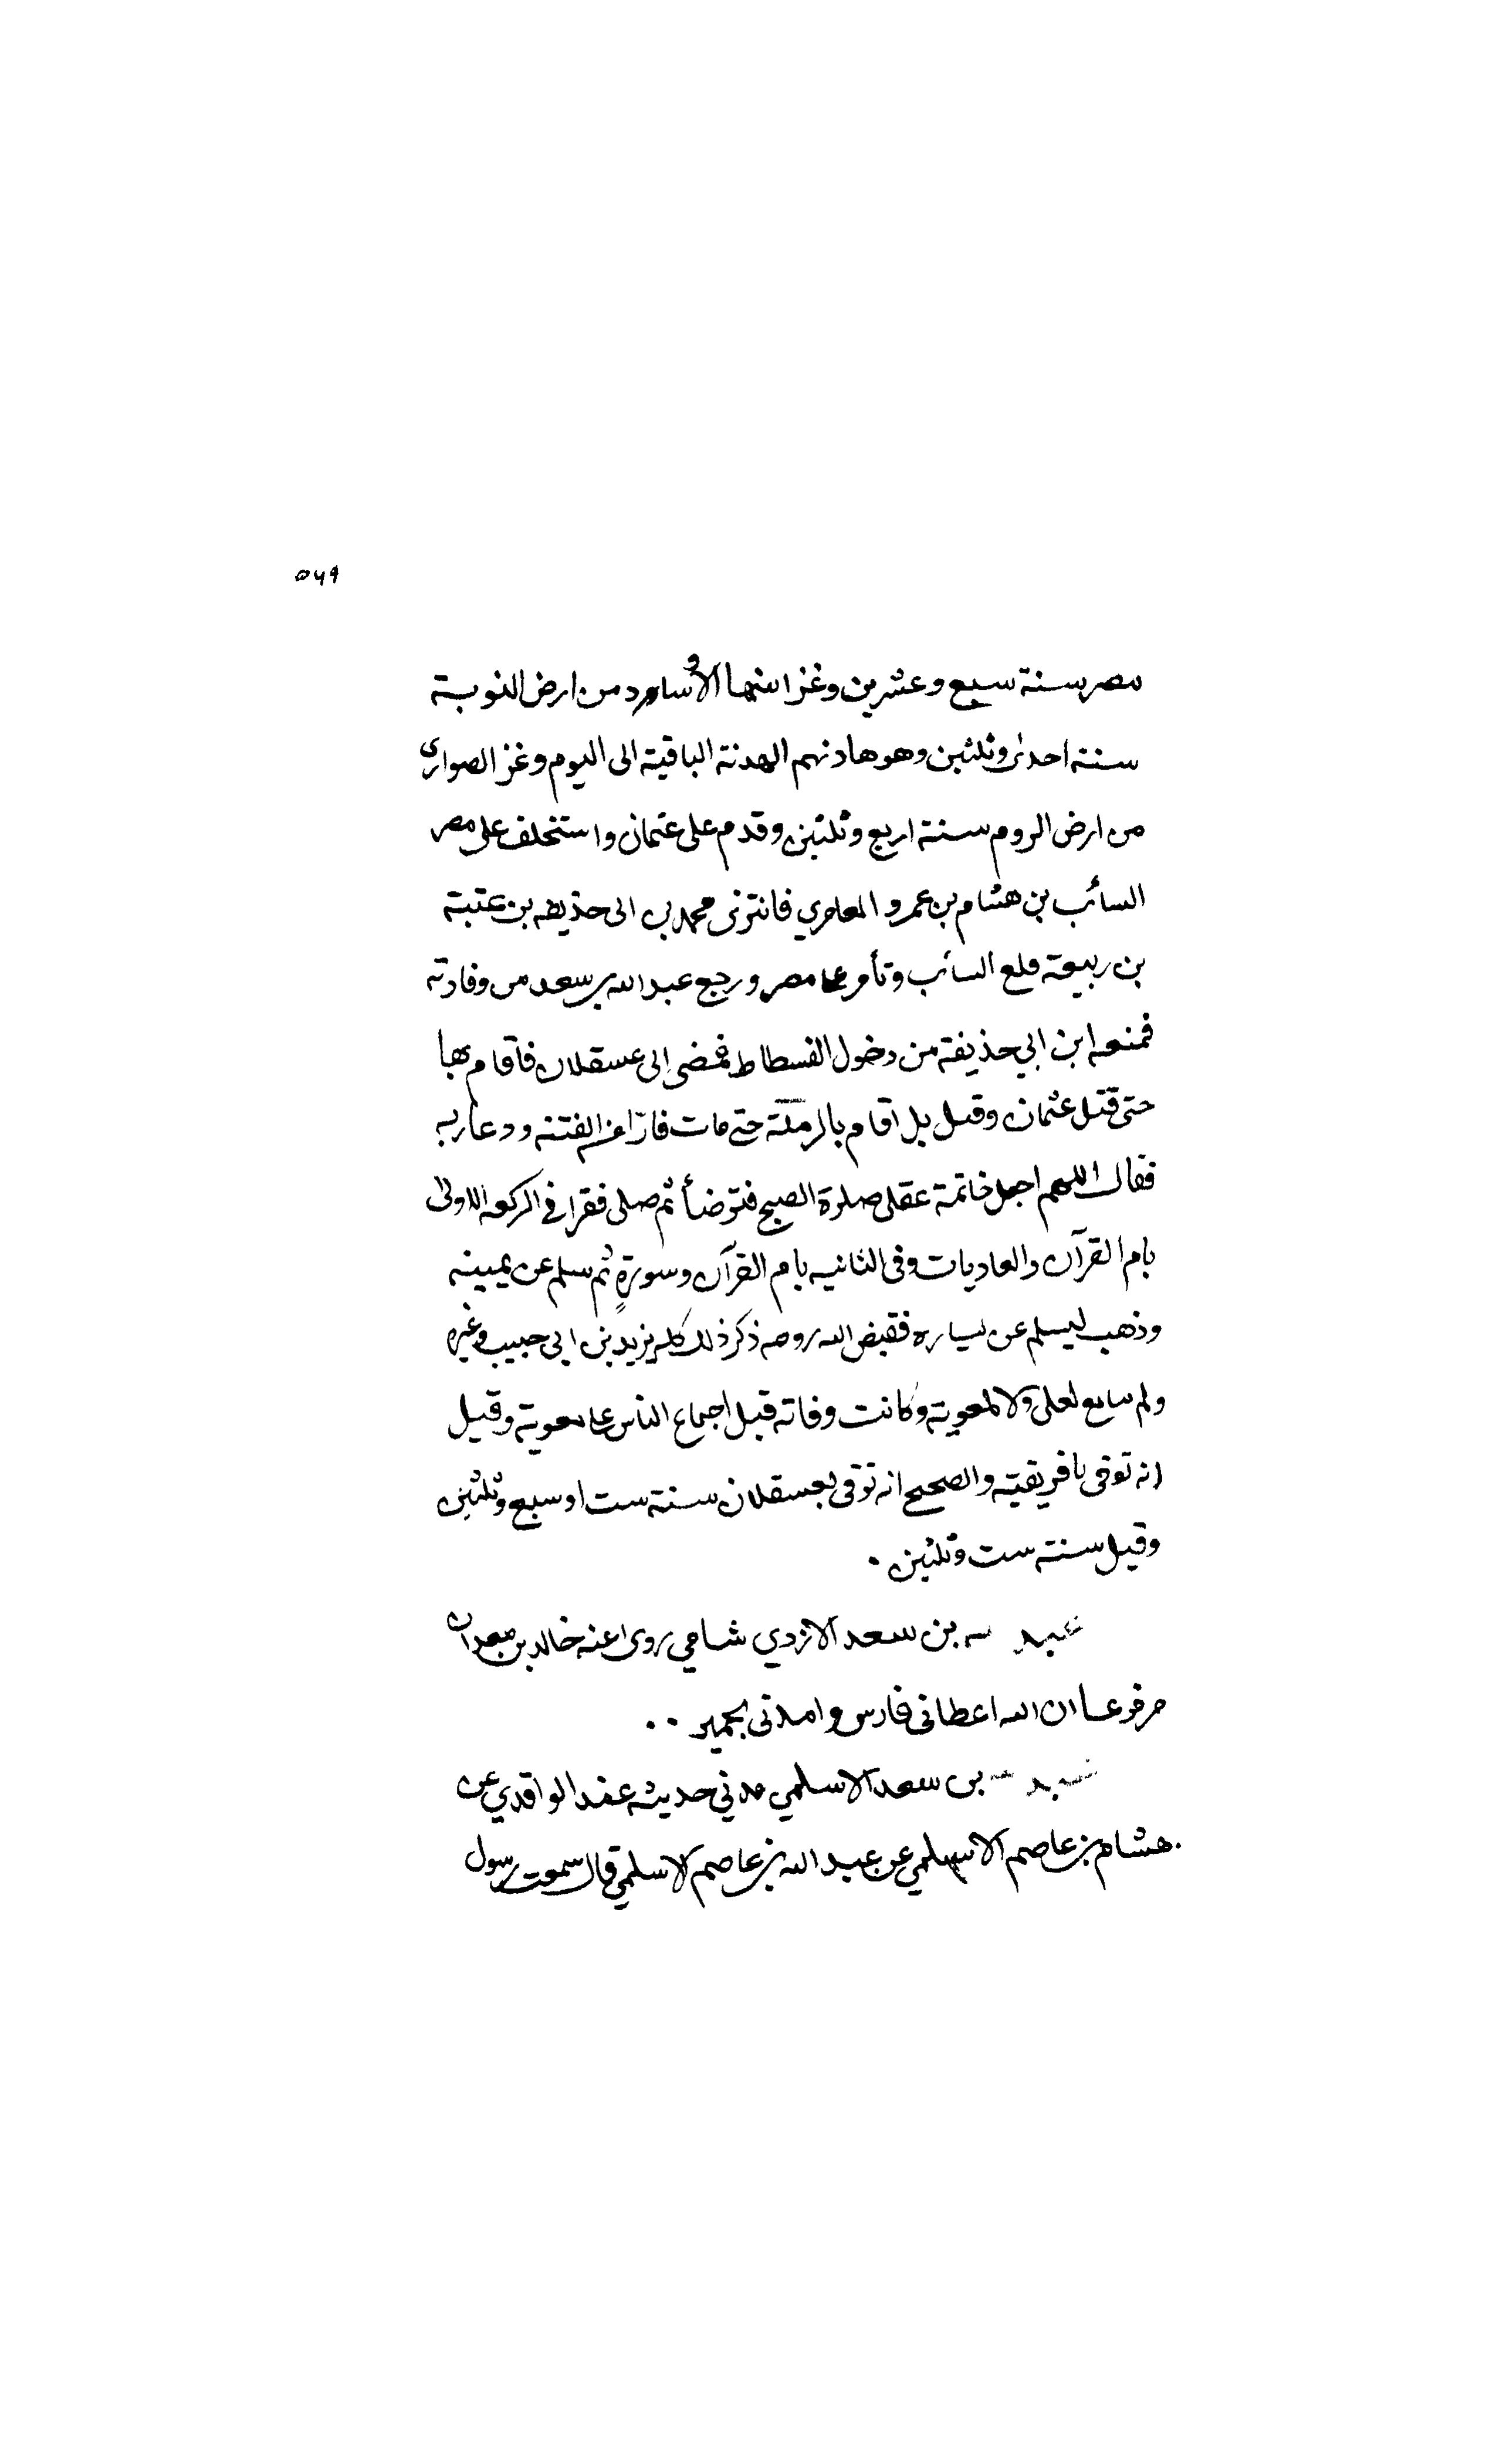 ٥٦٩
مصر سنة سبع وعشرين وغزا منها الأساود من ارض النوبة
سنة احدى وثلثين وهو هادنهم الهدنة الباقية الى اليوم وغز الصوارى
من ارض الروم سنة اربع وثلثين وقدم على عثمان واستخلف على مصر
السائب بن هشام بن عمرو العامري فانتزى محمد بن ابى حذيفه بن عتبة
بن ربيعة فخلع السائب وتأمر على مصر ورجع عبد الله بن سعد من وفادته
فمنعه ابن ابي حذيفة من دخول الفسطاط فمضى إلى عسقلان فأقام بها
حتى قتل عثمان وقيل بل اقام بالرملة حتى مات فارّا من الفتنه ودعا ربه
فقال اللهم اجعل خاتمة عملى صلوة الصبح فتوضأ ثم صلى فقرا فى الركعه الاولى
بام القرآن والعاديات وفى الثانيه بام القرآن وسورةٍ ثم سلم عن يمينه
وذهب ليسلم عن يساره فقبض الله روحه ذكر ذلك كله يزيد بن ابى حبيب وغيره
ولم يبايع لعلى ولا لمعوية وكانت وفاته قبل اجماع الناس على معوية وقيل
انه توفى بافريقية والصحيح انه توفى بعسقلان سنة ست او سبع وثلثين
وقيل سنة ست وثلثين .
عبد الله بن سعد الازدي شامي روى عنه خالد بن معدان
مرفوعا ان الله اعطانى فارس وامدنى بحمير . .
عبد الله بن سعد الاسلمي مدني حديثه عند الواقدي عن
هشام بن عاصم الاسلمي عن عبد الله بن عاصم الاسلمي قال سمعت رسول